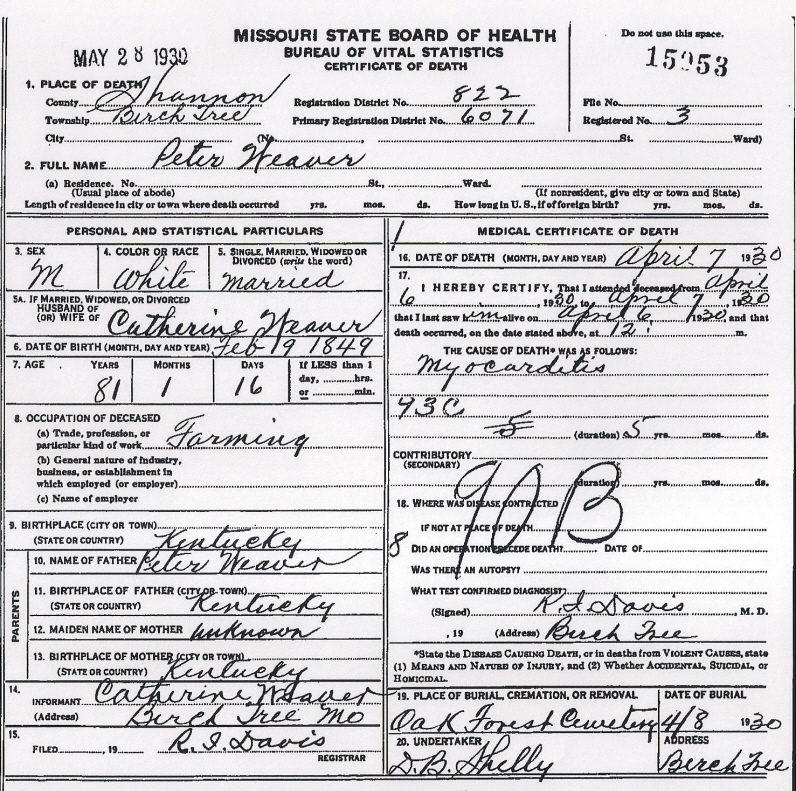 MISSOURI STATE BOARD OF HEALTH
BUREAU OF VITAL STATISTICS
CERTIFICATE OF DEATH
MAY 28 1930
Do not use this space.
15053
1. PLACE OF DEATH
County Shannon Registration District No. 822 File No.
Township Birch Tree Primary Registration District No. 6071 Registered No. 3
City (No. , St. Ward)
2. FULL NAME Peter Weaver
(a) Residence. No. St., Ward.
(Usual place of abode) (If nonresident, give city or town and State)
Length of residence in city or town where death occurred yrs. mos. ds. How long in U. S., if of foreign birth? yrs. mos. ds.
PERSONAL AND STATISTICAL PARTICULARS
3. SEX M
4. COLOR OR RACE White
5. SINGLE, MARRIED, WIDOWED OR DIVORCED (write the word) married
5A. IF MARRIED, WIDOWED, OR DIVORCED
HUSBAND OF
(OR) WIFE OF Catherine Weaver
6. DATE OF BIRTH (MONTH, DAY AND YEAR) Feb 19 1849
7. AGE YEARS MONTHS DAYS If LESS than 1
81 1 16 day, hrs.
or min.
8. OCCUPATION OF DECEASED
(a) Trade, profession, or
particular kind of work Farming
(b) General nature of industry,
business, or establishment in
which employed (or employer)
(c) Name of employer
9. BIRTHPLACE (CITY OR TOWN)
(STATE OR COUNTRY) Kentucky
PARENTS
10. NAME OF FATHER Peter Weaver
11. BIRTHPLACE OF FATHER (CITY OR TOWN)
(STATE OR COUNTRY) Kentucky
12. MAIDEN NAME OF MOTHER unknown
13. BIRTHPLACE OF MOTHER (CITY OR TOWN)
(STATE OR COUNTRY) Kentucky
14.
INFORMANT Catherine Weaver
(Address) Birch Tree Mo
15.
FILED , 19 R. I. Davis
REGISTRAR
MEDICAL CERTIFICATE OF DEATH
16. DATE OF DEATH (MONTH, DAY AND YEAR) April 7 1930
17.
I HEREBY CERTIFY, That I attended deceased from April
6, 1930, to April 7, 1930
that I last saw him alive on April 6 1930, and that
death occurred, on the date stated above, at 12 m.
THE CAUSE OF DEATH* WAS AS FOLLOWS:
Myocarditis
93C
5 (duration) 5 yrs. mos. ds.
CONTRIBUTORY
(SECONDARY)
(duration) yrs. mos. ds.
90B
18. WHERE WAS DISEASE CONTRACTED
IF NOT AT PLACE OF DEATH
8 DID AN OPERATION PRECEDE DEATH? DATE OF
WAS THERE AN AUTOPSY?
WHAT TEST CONFIRMED DIAGNOSIS?
(Signed) R. I. Davis, M. D.
, 19 (Address) Birch Tree
*State the DISEASE CAUSING DEATH, or in deaths from VIOLENT CAUSES, state
(1) MEANS AND NATURE OF INJURY, and (2) Whether ACCIDENTAL, SUICIDAL, or
HOMICIDAL.
19. PLACE OF BURIAL, CREMATION, OR REMOVAL DATE OF BURIAL
Oak Forest Cemetery 4/8 1930
20. UNDERTAKER ADDRESS
D. B. Shelly Birch Tree